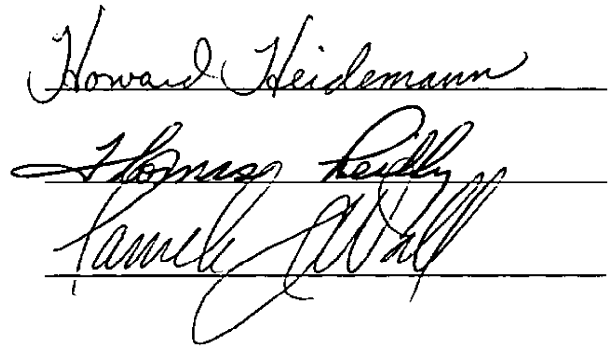 Howard Heidemann
Thomas Reidly
Pamela J Wall